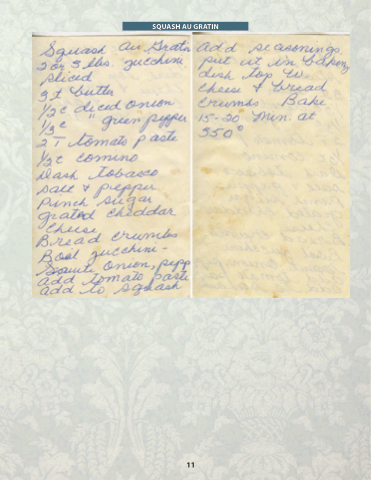 SQUASH AU GRATIN
Squash Au Gratin
2 or 3 lbs. zucchini
sliced
3 t butter
1/2 c diced onion
1/3 c " green pepper
1 T tomato paste
1/2 t comino
Dash tobasco
salt & pepper
Pinch sugar
grated cheddar
cheese
Bread crumbs
Boil zucchini -
Saute onion, pepp
add tomato paste
add to squash
add seasonings.
put it in baking
dish top w.
cheese & bread
crumbs Bake
15-20 min. at
350°
11